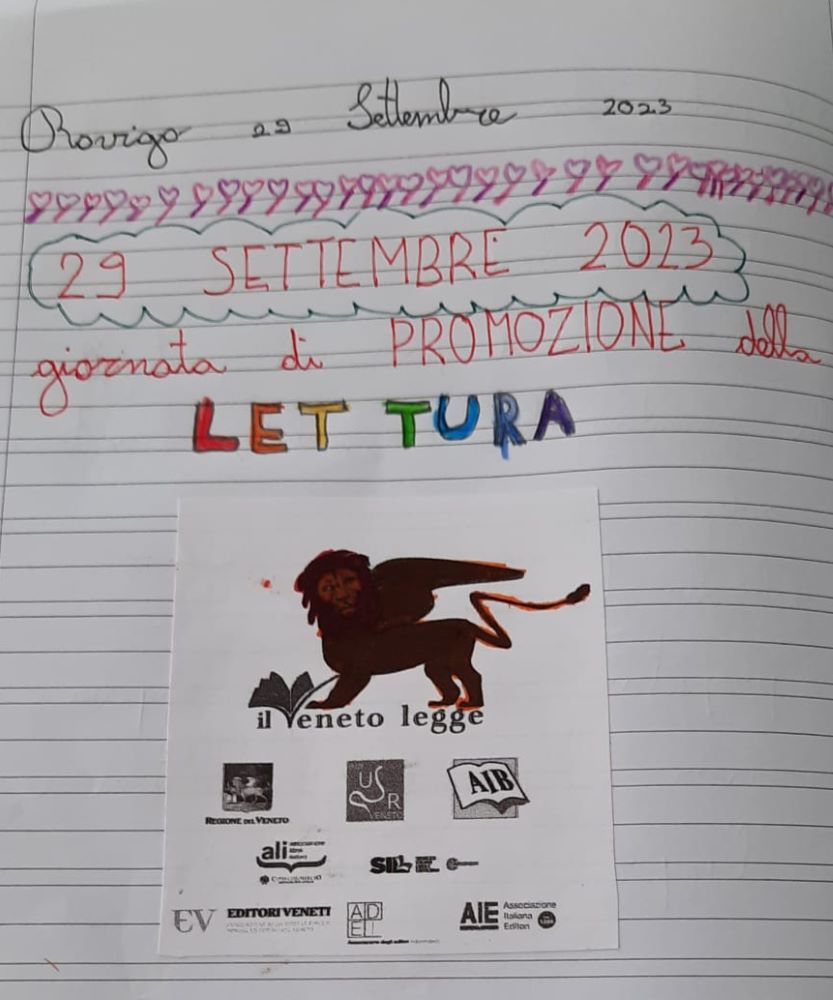 Rovigo 29 Settembre 2023
29 SETTEMBRE 2023
giornata di PROMOZIONE della
LETTURA
il Veneto legge
REGIONE DEL VENETO
USR
VENETO
AIB
ali
EV EDITORI VENETI
ADEI
AIE Associazione
Italiana
Editori